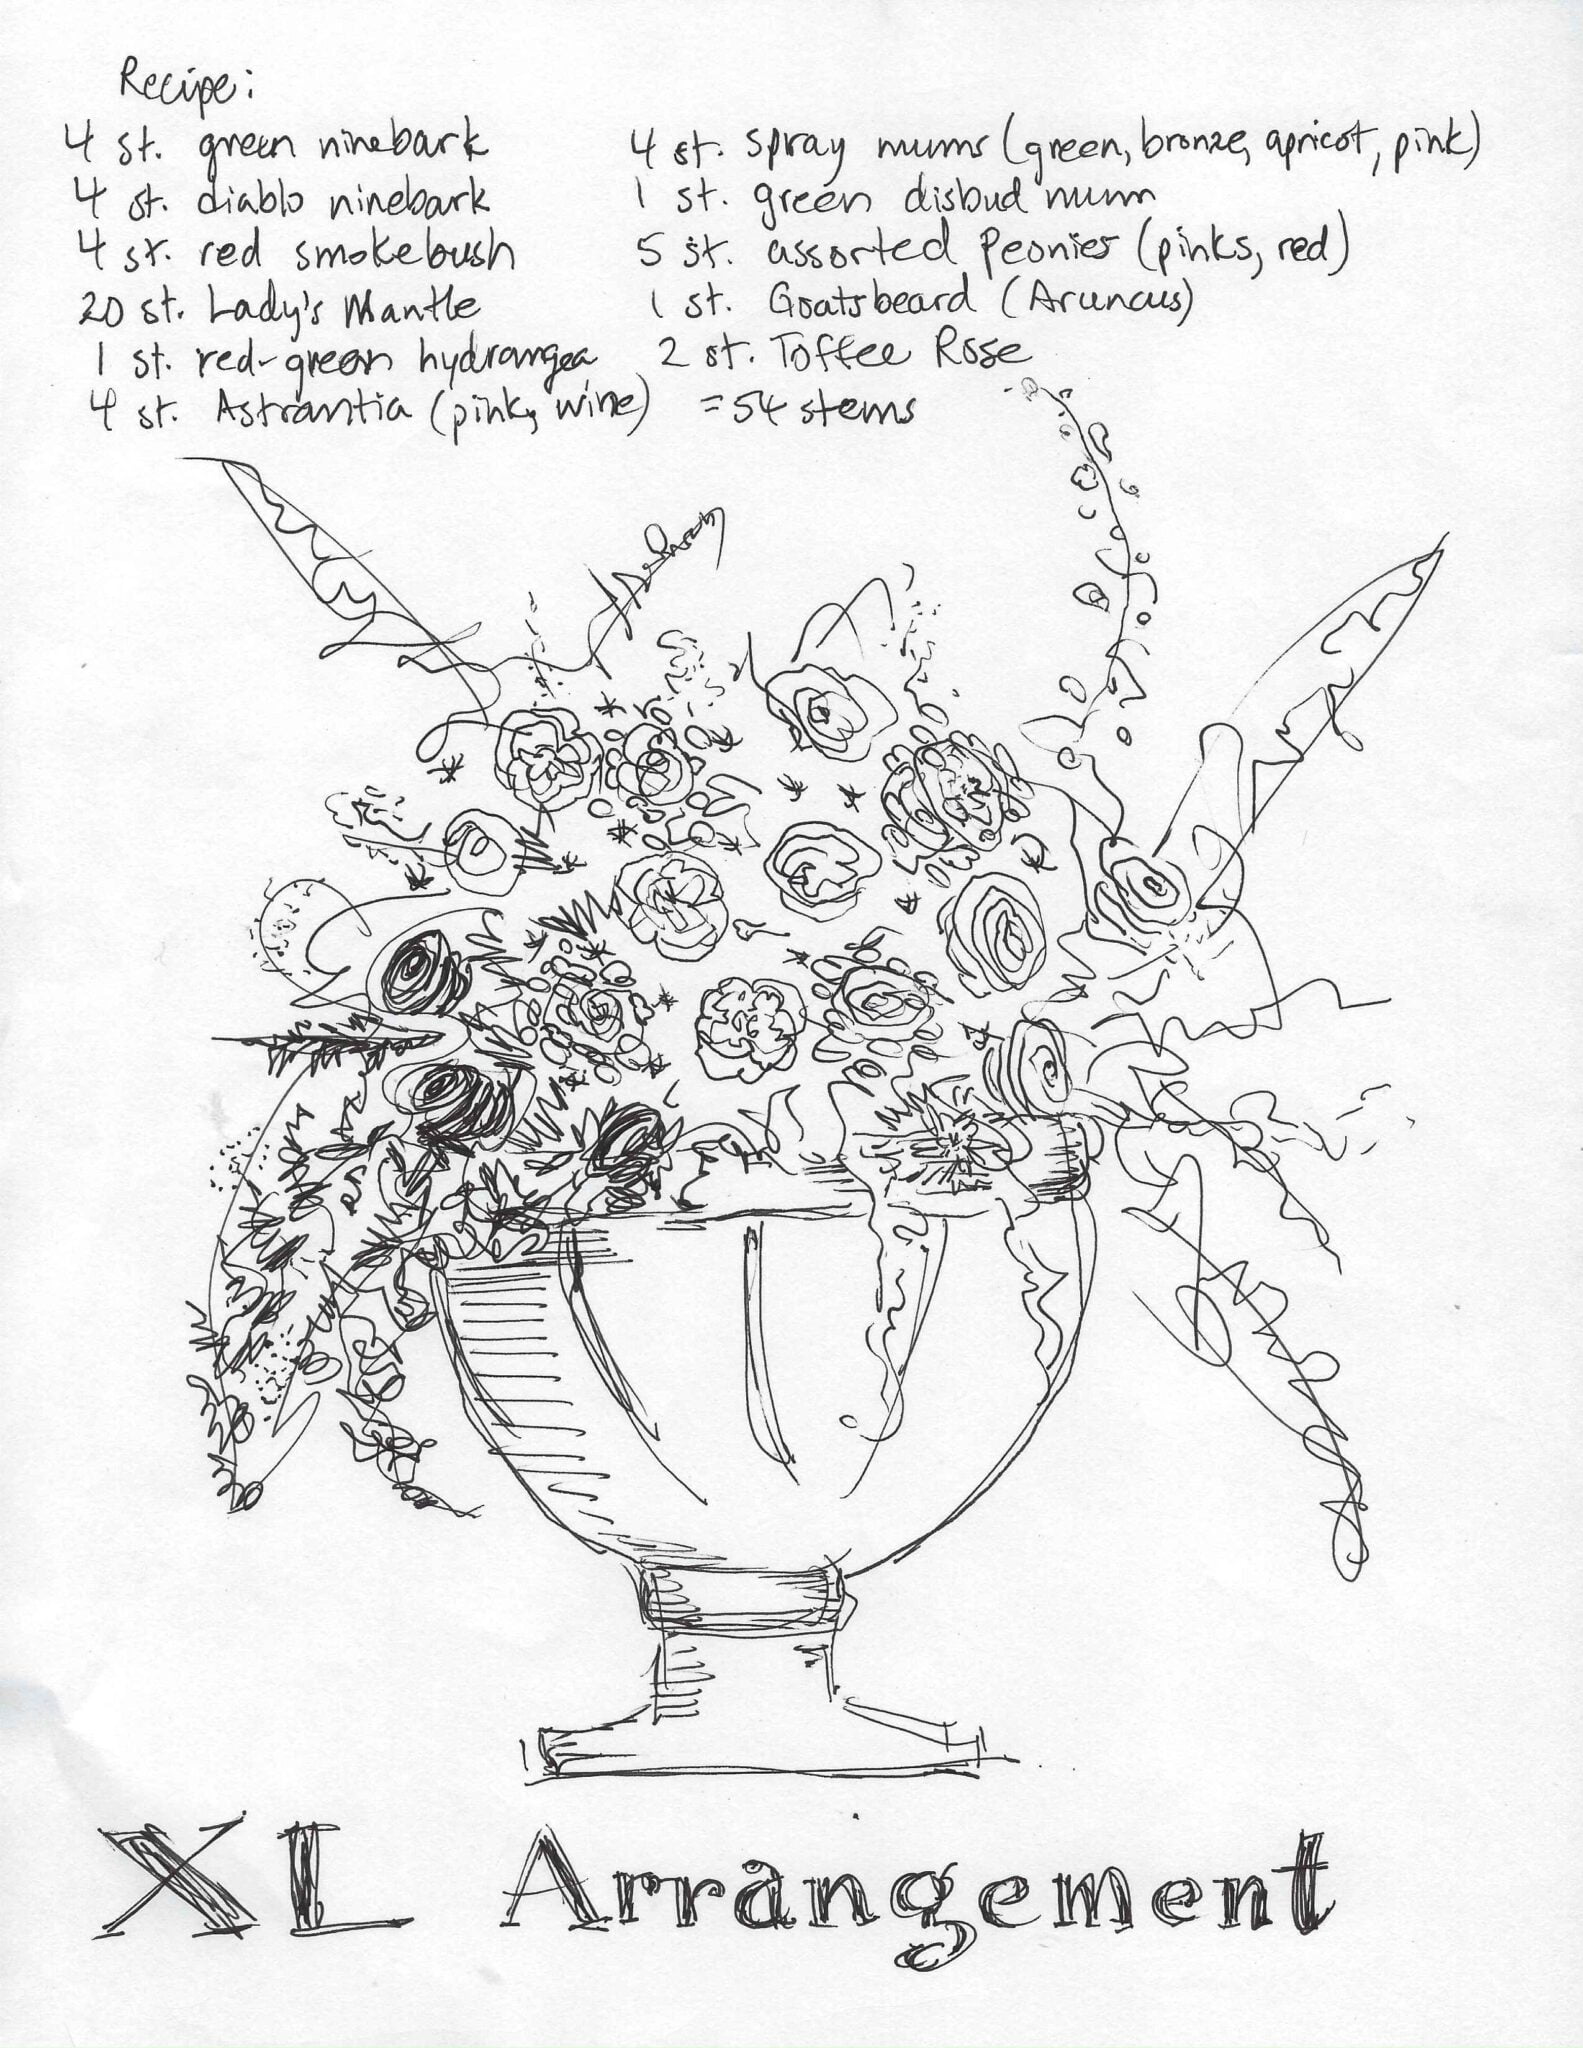 Recipe:
4 st. green ninebark
4 st. diablo ninebark
4 st. red smokebush
20 st. Lady's Mantle
1 st. red-green hydrangea
4 st. Astrantia (pink, wine)
4 st. spray mums (green, bronze, apricot, pink)
1 st. green disbud mum
5 st. assorted Peonies (pinks, red)
1 st. Goatsbeard (Aruncus)
2 st. Toffee Rose
= 54 stems
XL Arrangement